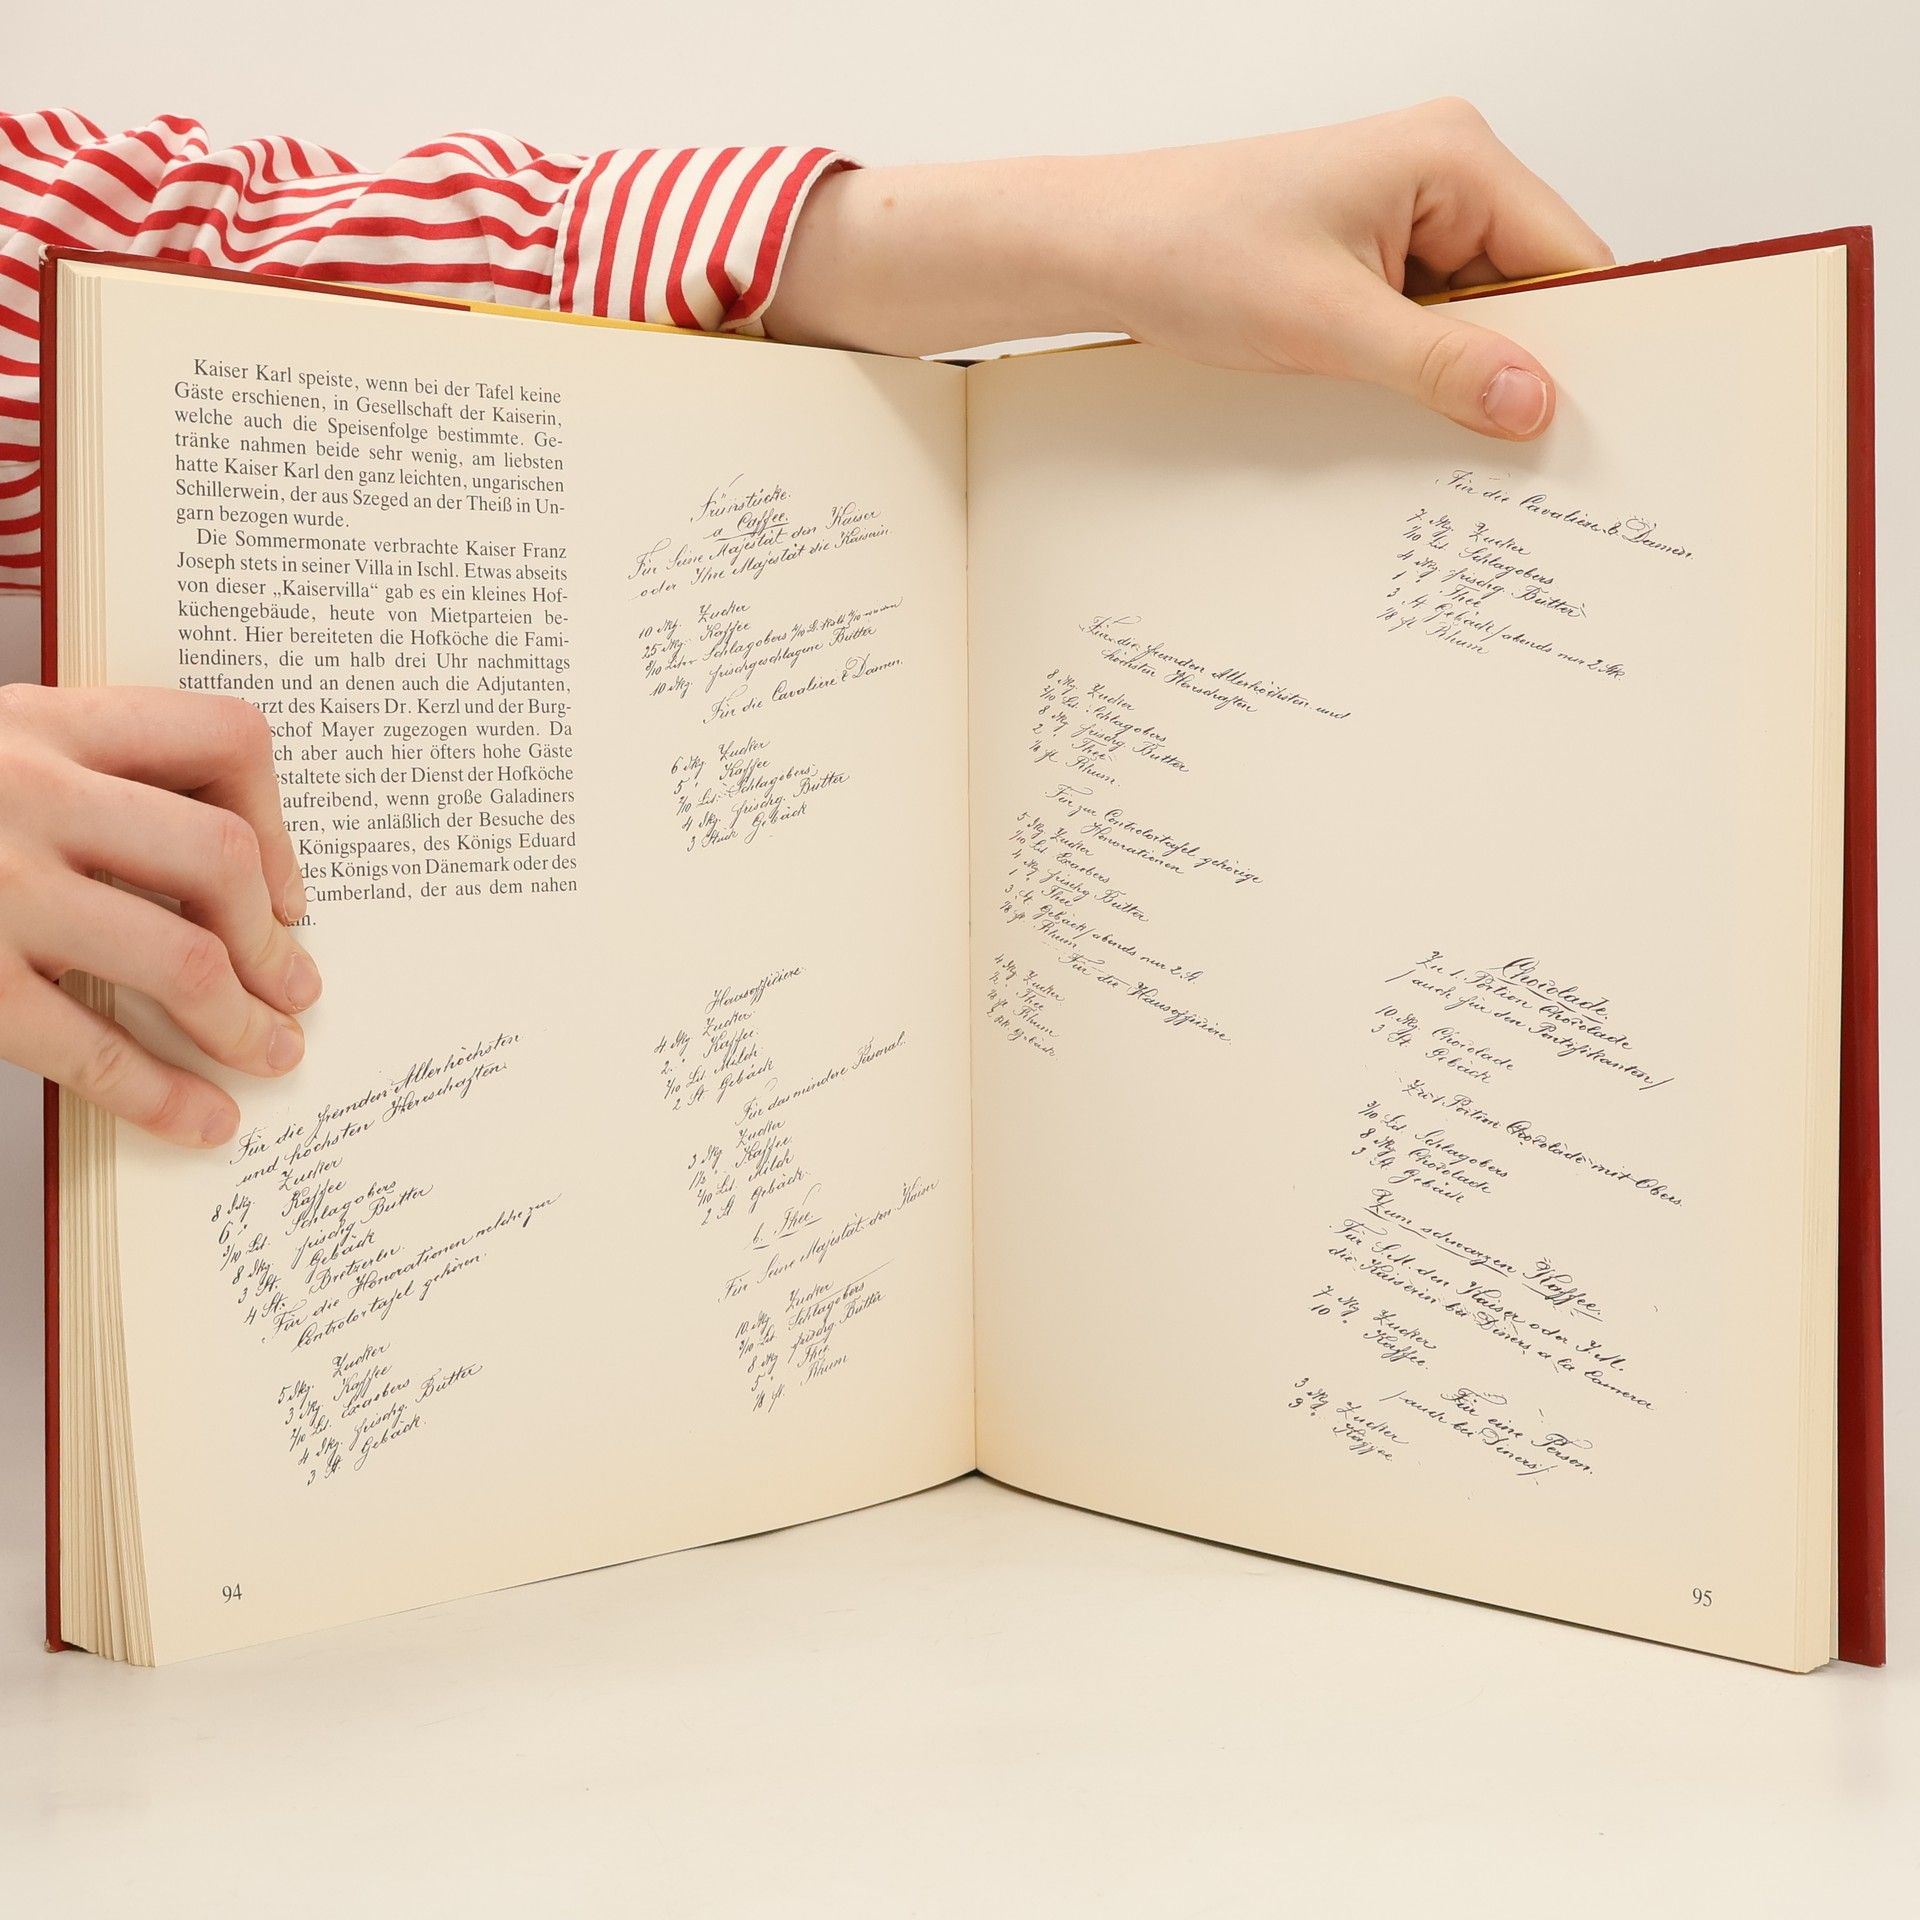 Kaiser Karl speiste, wenn bei der Tafel keine
Gäste erschienen, in Gesellschaft der Kaiserin,
welche auch die Speisenfolge bestimmte. Ge-
tränke nahmen beide sehr wenig, am liebsten
hatte Kaiser Karl den ganz leichten, ungarischen
Schillerwein, der aus Szeged an der Theiß in Un-
garn bezogen wurde.
Die Sommermonate verbrachte Kaiser Franz
Joseph stets in seiner Villa in Ischl. Etwas abseits
von dieser „Kaiservilla“ gab es ein kleines Hof-
küchengebäude, heute von Mietparteien be-
wohnt. Hier bereiteten die Hofköche die Fami-
liendiners, die um halb drei Uhr nachmittags
stattfanden und an denen auch die Adjutanten,
arzt des Kaisers Dr. Kerzl und der Burg-
schof Mayer zugezogen wurden. Da
ch aber auch hier öfters hohe Gäste
estaltete sich der Dienst der Hofköche
aufreibend, wenn große Galadiners
aren, wie anläßlich der Besuche des
Königspaares, des Königs Eduard
des Königs von Dänemark oder des
Cumberland, der aus dem nahen
Für die fremden Allerhöchsten
und höchsten Herrschaften.
8 Dkg. Zucker
6 " Kaffee
3/10 Lit. Schlagobers
8 Dkg. frischg. Butter
3 St. Gebäck
4 St. Bretzerln.
Für die Honorationen welche zur
Controlortafel gehören.
5 Dkg. Zucker
3 Dkg. Kaffee
2/10 Lit. Exaobers
4 Dkg. frischg. Butter
3 St. Gebäck.
94
Früstücke.
a Caffee.
Für Seine Majestät den Kaiser
oder Ihre Majestät die Kaiserin.
10 Dkg. Zucker
25 Dkg. Kaffee
8/10 Liter Schlagobers
10 Dkg. frischgeschlagene Butter
Für die Cavaliere & Damen.
6 Dkg. Zucker
5 " Kaffee
2/10 Lit. Schlagobers
4 Dkg. frischg. Butter
3 Stück Gebäck
Hausofficiere.
4 Dkg Zucker
2 " Kaffee.
2/10 Lit. Milch.
2 St Gebäck
Für das mindere Personal.
3 Dkg Zucker
1½ " Kaffee
2/10 Lit. Milch
2 St Gebäck.
b. Thee.
Für Seine Majestät den Kaiser
10 Dkg Zucker
3/10 Lit. Schlagobers
8 Dkg frischg. Butter
5 " Thee
1/8 fl. Rhum
Für die fremden Allerhöchsten und
höchsten Herschaften
8 Dkg Zucker
2/10 Lit. Schlagobers
8 Dkg frischg Butter
2 " Thee
1/8 fl Rhum.
Für zur Controlortafel gehörige
Honorationen
5 Dkg Zucker
1/10 Lit Exaobers
4 Dkg frischg. Butter
1 " Thee
3 St. Gebäck/abends nur 2 St.
1/8 fl. Rhum
Für die Hausofficiere.
4 Dkg Zucker
1/2 " Thee
1/8 fl. Rhum
2 Stk Gebäck.
Für die Cavaliere & Damen.
7 Dkg. Zucker
1/10 Lit Schlagobers
4 Dkg frischg. Butter
1 " Thee
3 St Gebäck/abends nur 2 Stk.
1/8 fl Rhum
Chocolade.
Zu 1. Portion Chocolade
/auch für den Pontifikanten/
10 Dkg Chocolade
3 St. Gebäck
Zu 1 Portion Chocolade mit Obers.
3/10 Lit. Schlagobers
8 Dkg Chocolade
3 St Gebäck
Zum schwarzen Kaffee.
Für S.M. den Kaiser oder I.M.
die Kaiserin bei Diners a la Camera
7 Dkg Zucker
10 " Kaffee.
Für eine Person.
/auch bei Diners/
3 Dkg Zucker
3 " Kaffee
95